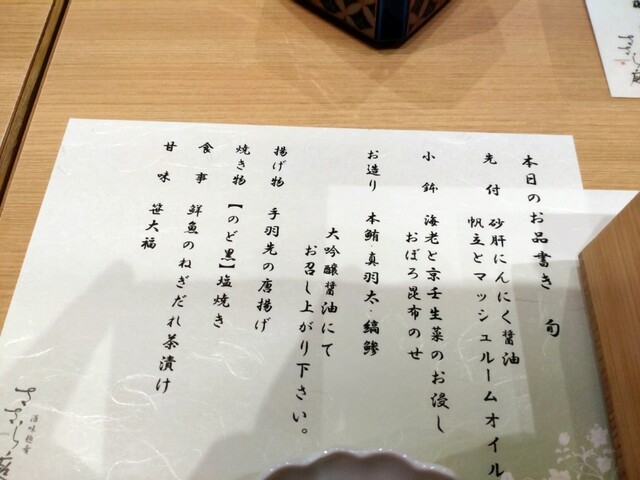 本日のお品書き 旬
先付 砂肝にんにく醤油
帆立とマッシュルームオイル
小鉢 海老と京壬生菜のお浸し
おぼろ昆布のせ
お造り 本鮪・真羽太・縞鰺
大吟醸醤油にて
お召し上がり下さい。
揚げ物 手羽先の唐揚げ
焼き物 【のど黒】塩焼き
食事 鮮魚のねぎだれ茶漬け
甘味 笹大福